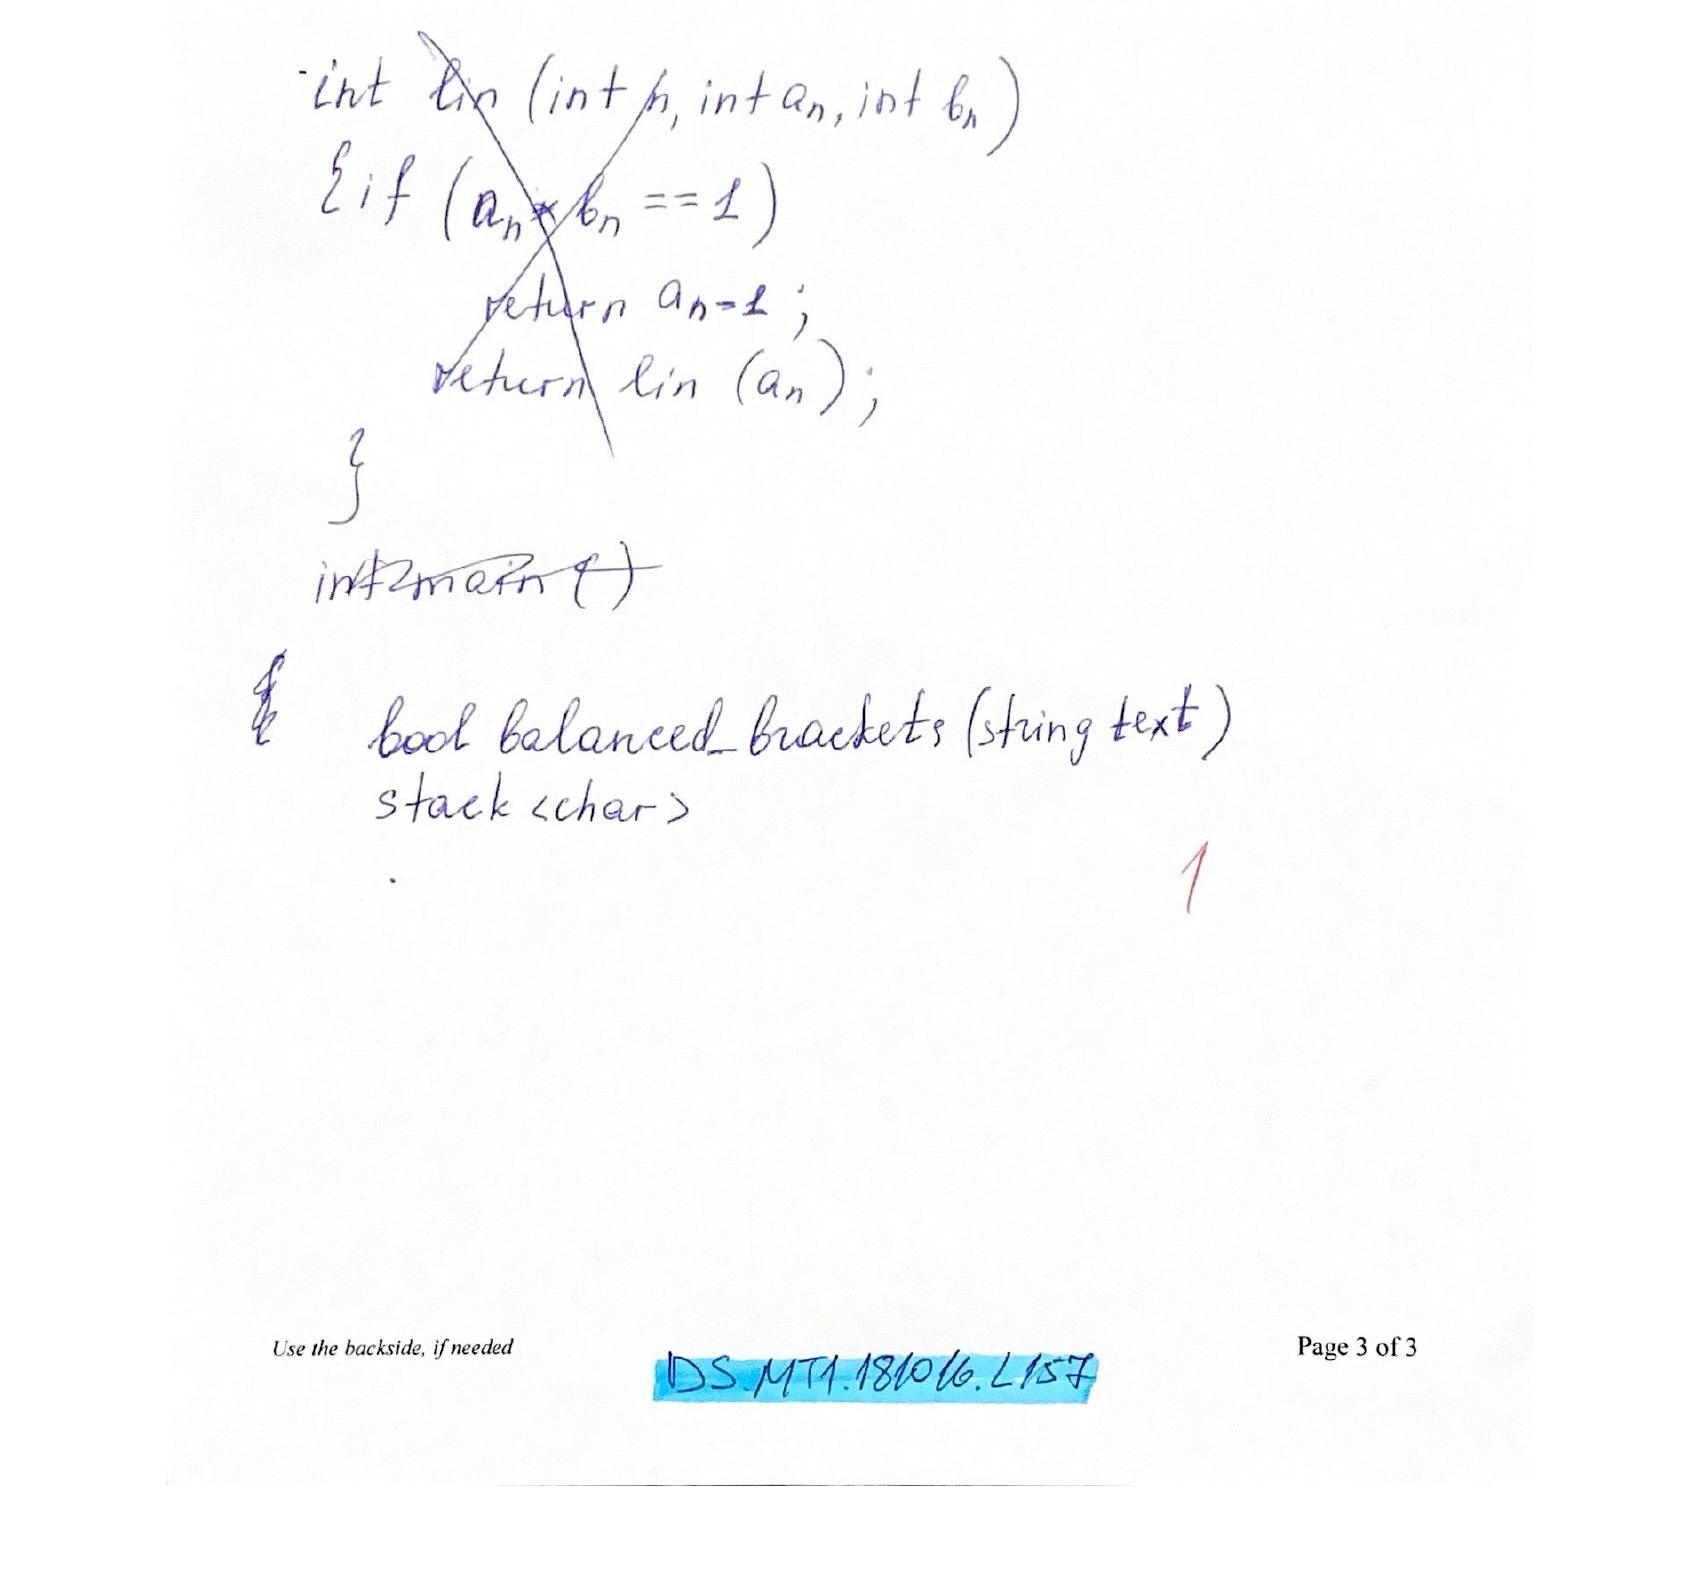 int lin (int n, int an, int bn)
{if (an * bn == 1)
return an=1;
return lin (an);
}
int main ()
{
bool balanced_brackets (string text)
stack <char>
.
1
Use the backside, if needed
DS.MT1.181016.L157
Page 3 of 3